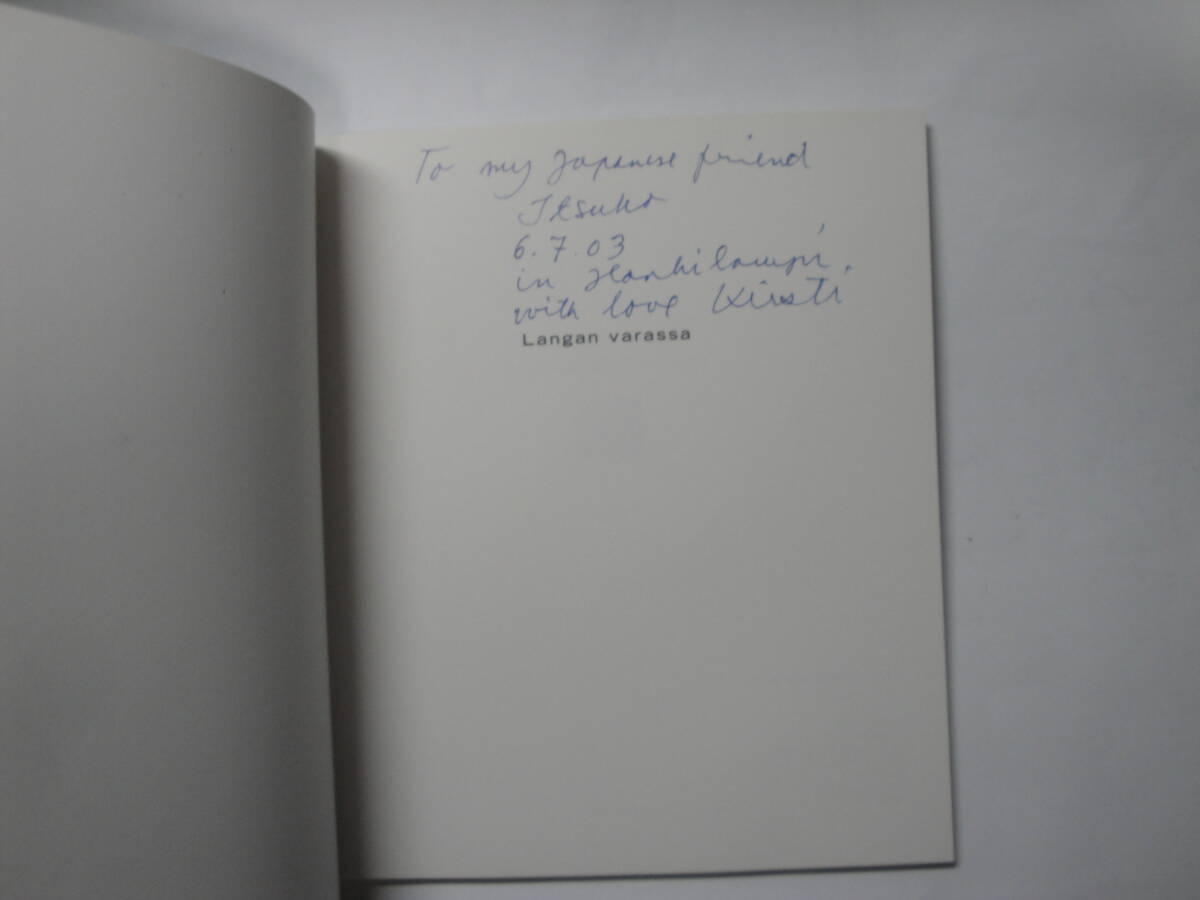 To my Japanese friend
Itsuko
6.7.03
in Hankilampi,
with love Kirsti
Langan varassa